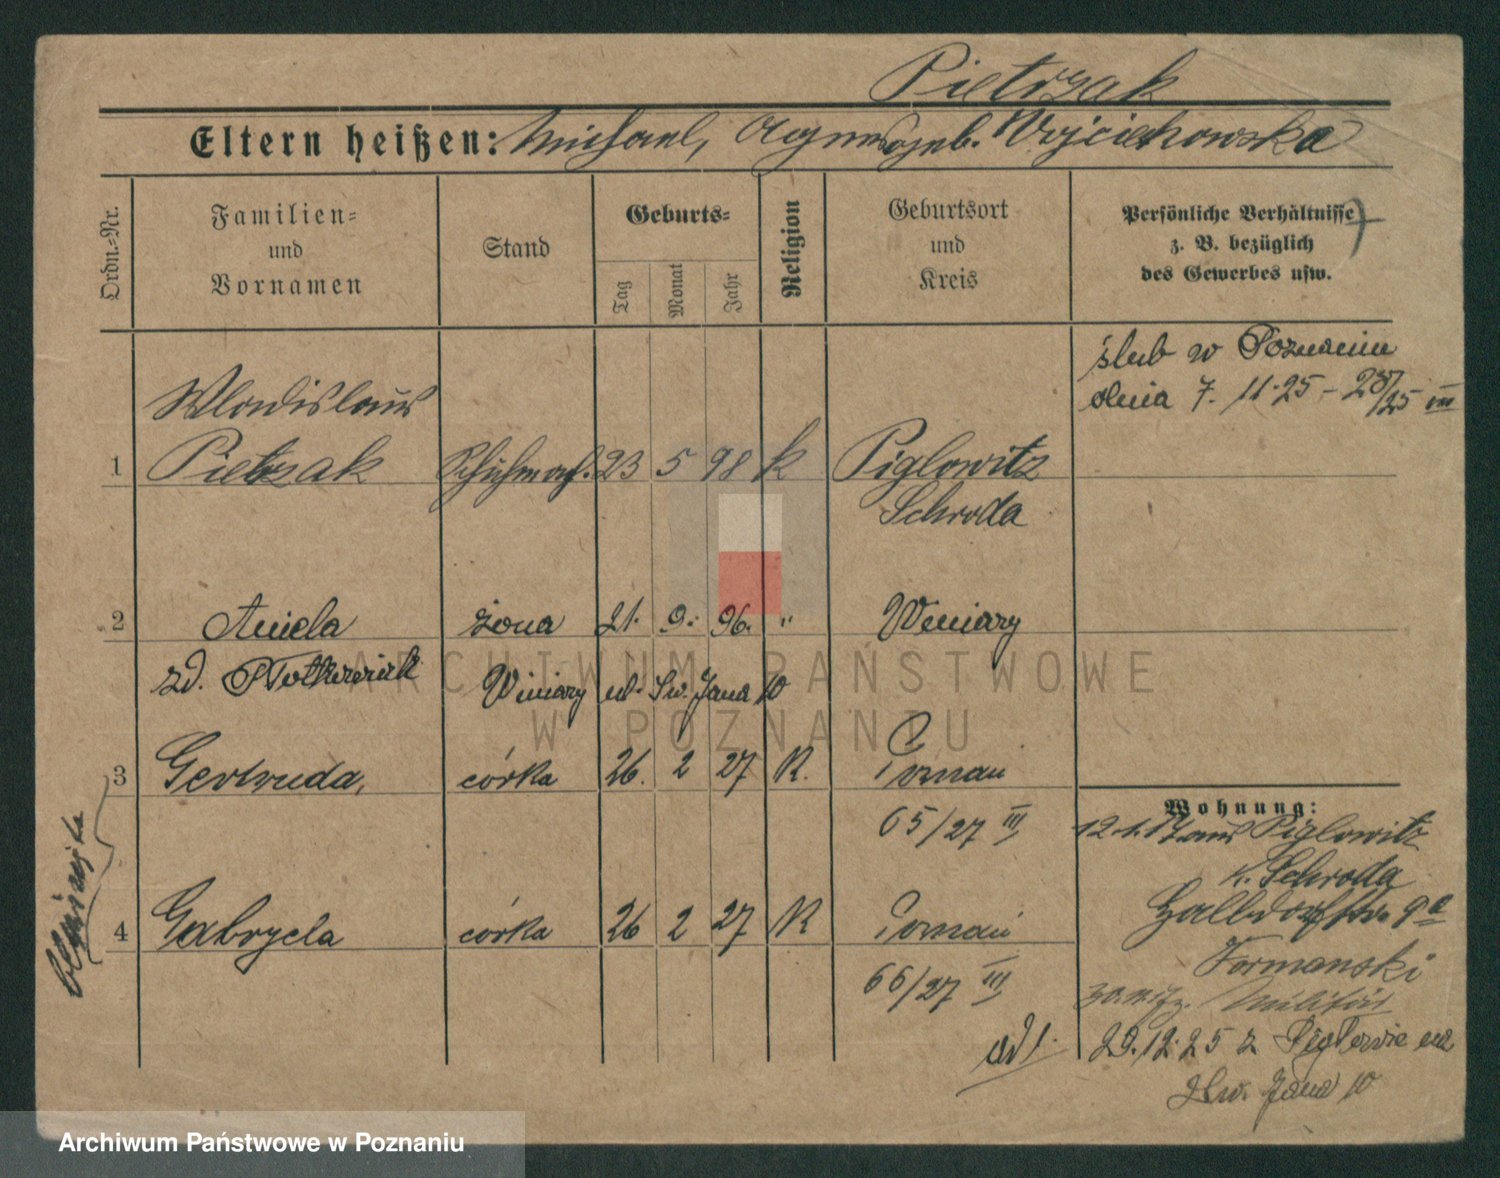 Pietrzak
Eltern heißen: Michael, Agnes geb. Wojciechowska
Ordn.=Nr.
Familien=
und
Vornamen
Stand
Geburts=
Tag
Monat
Jahr
Religion
Geburtsort
und
Kreis
Persönliche Verhältnisse
z. B. bezüglich
des Gewerbes usw.
ślub w Poznaniu
dnia 7. 11. 25 –
Wladislaus
1 Pietrzak Schuhmach. 23 5 98 K Piglowitz
Schroda
2 Aniela żona 21. 9. 96. " Winiary
zd.
Winiary ul. Św. Jana 10
3 Gertruda, córka 26. 2 27 R. Poznań
65/27 III
Wohnung:
12.1.17 aus Piglowitz
K. Schroda
9a
Formanski
Militär
4 Gabryela córka 26 2 27 R Poznań
66/27 III
bliźnięta
29.12.25 z Pigłowic na
Św. Jana 10
ARCHIWUM PAŃSTWOWE
W POZNANIU
Archiwum Państwowe w Poznaniu